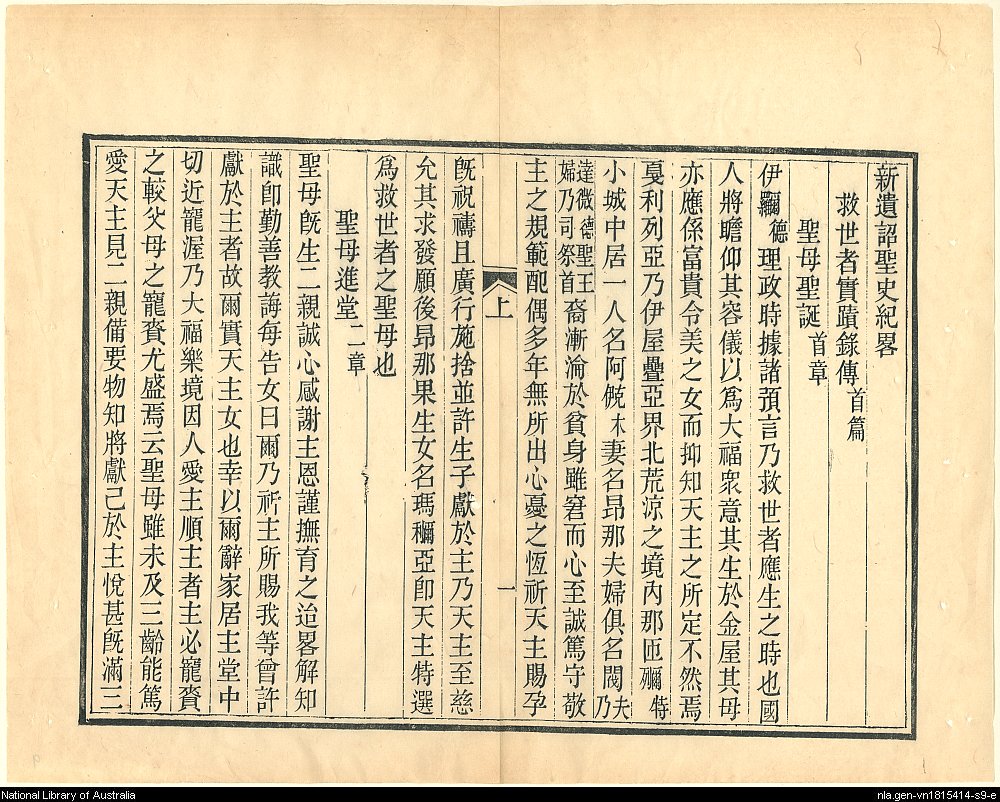 新遺詔聖史紀畧
救世者實蹟錄傳首篇
聖母聖誕首章
伊羅德理政時據諸預言乃救世者應生之時也國
人將瞻仰其容儀以爲大福衆意其生於金屋其母
亦應係富貴令美之女而抑知天主之所定不然焉
戛利列亞乃伊屋疊亞界北荒涼之境內那匝彌特
小城中居一人名阿㒋木妻名昂那夫婦俱名閥夫乃
達微德聖王婦乃司祭首裔漸淪於貧身雖窘而心至誠篤守敬
主之規範配偶多年無所出心憂之恆祈天主賜孕
上
一
旣祝禱且廣行施捨並許生子獻於主乃天主至慈
允其求發願後昂那果生女名瑪穪亞卽天主特選
爲救世者之聖母也
聖母進堂二章
聖母旣生二親誠心感謝主恩謹撫育之迨畧解知
識卽勤善教誨每告女曰爾乃祈主所賜我等曾許
獻於主者故爾實天主女也幸以爾辭家居主堂中
切近寵渥乃大福樂境因人愛主順主者主必寵賚
之較父母之寵賚尤盛焉云聖母雖未及三齡能篤
愛天主見二親備要物知將獻己於主悅甚旣滿三
National Library of Australia
nla.gen-vn1815414-s9-e